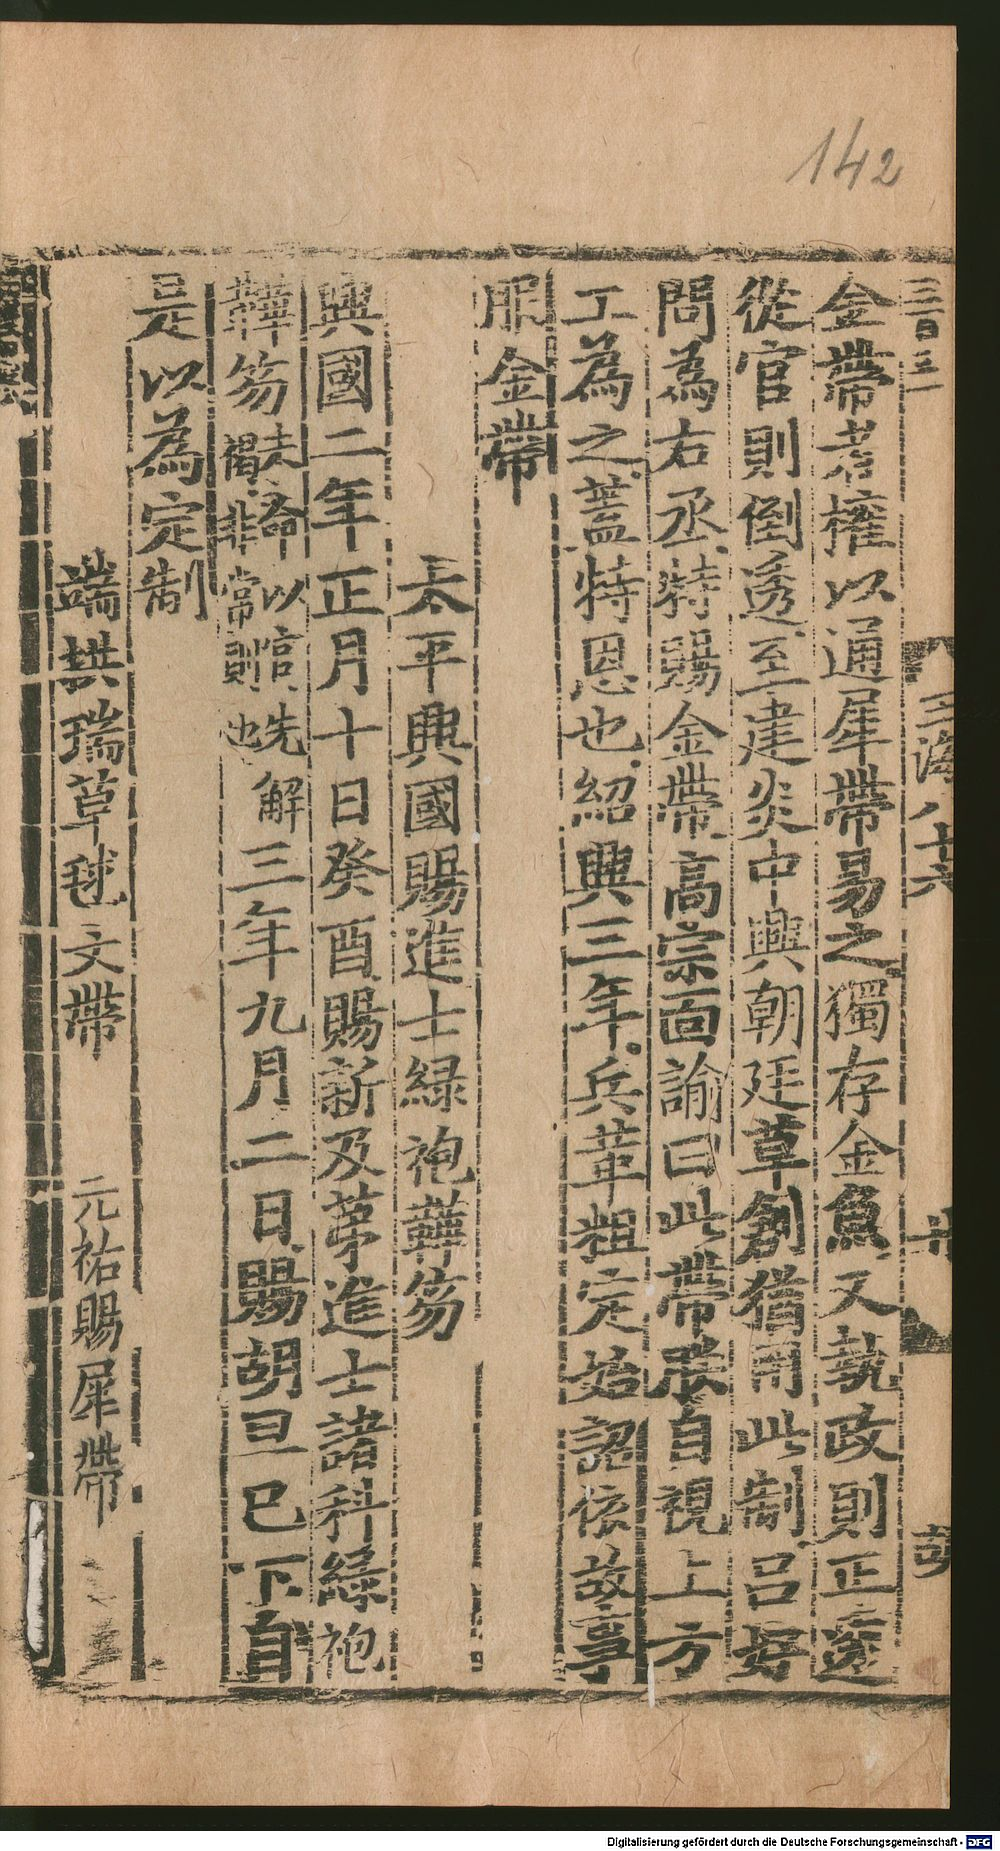 142
三百三
玉海八十六
廿
金帶者權以通犀帶易之獨存金魚又執政則正透
從官則倒透至建炎中興朝廷草創猶用此制呂好
問為右丞特賜金帶高宗面諭曰此帶朕自視上方
工為之蓋特恩也紹興三年兵革粗定始詔依故事
服金帶
太平興國賜進士綠袍鞾笏
興國二年正月十日癸酉賜新及第進士諸科綠袍
鞾笏未命以官先解褐非常則也三年九月二日賜胡旦已下自
是以為定制
端拱瑞草毬文帶 元祐賜犀帶
Digitalisierung gefördert durch die Deutsche Forschungsgemeinschaft - DFG